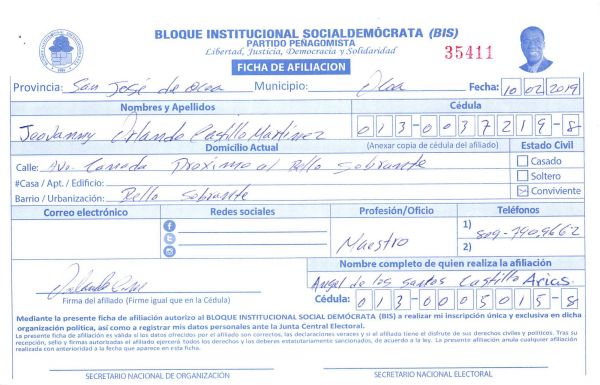 BLOQUE INSTITUCIONAL SOCIALDEMÓCRATA (BIS)
PARTIDO PEÑAGOMISTA
Libertad, Justicia, Democracia y Solidaridad
35411
FICHA DE AFILIACION
Provincia: San José de Ocoa Municipio: Ocoa Fecha: 10 02 2019
Nombres y Apellidos Cédula
Jeovanny Orlando Castillo Martínez 013-0037219-8
Domicilio Actual (Anexar copia de cédula del afiliado) Estado Civil
Calle: Ave. Canada Proximo al Bello Sobrante Casado
#Casa / Apt. / Edificio: Soltero
Barrio / Urbanización: Bello Sobrante Conviviente
Correo electrónico Redes sociales Profesión/Oficio Teléfonos
Maestro 1) 809-740,9662
2)
Nombre completo de quien realiza la afiliación
Angel de los Santos Castillo Arias
Firma del afiliado (Firme igual que en la Cédula) Cédula: 013-0005015-8
Mediante la presente ficha de afiliación autorizo al BLOQUE INSTITUCIONAL SOCIALDEMÓCRATA (BIS) a realizar mi inscripción única y exclusiva en dicha
organización política, así como a registrar mis datos personales ante la Junta Central Electoral.
La presente ficha de afiliación es válida si los datos ofrecidos por el afiliado son correctos, las declaraciones veraces y si el afiliado tiene el disfrute de sus derechos civiles y políticos. Tras su
recepción, sello y firmas autorizadas el afiliado ejercerá todos los derechos y los deberes estatutariamente sancionados, de acuerdo a la ley. La presente afiliación anula cualquier afiliación
realizada con anterioridad a la fecha que aparece en esta ficha.
SECRETARIO NACIONAL DE ORGANIZACIÓN SECRETARIO NACIONAL ELECTORAL